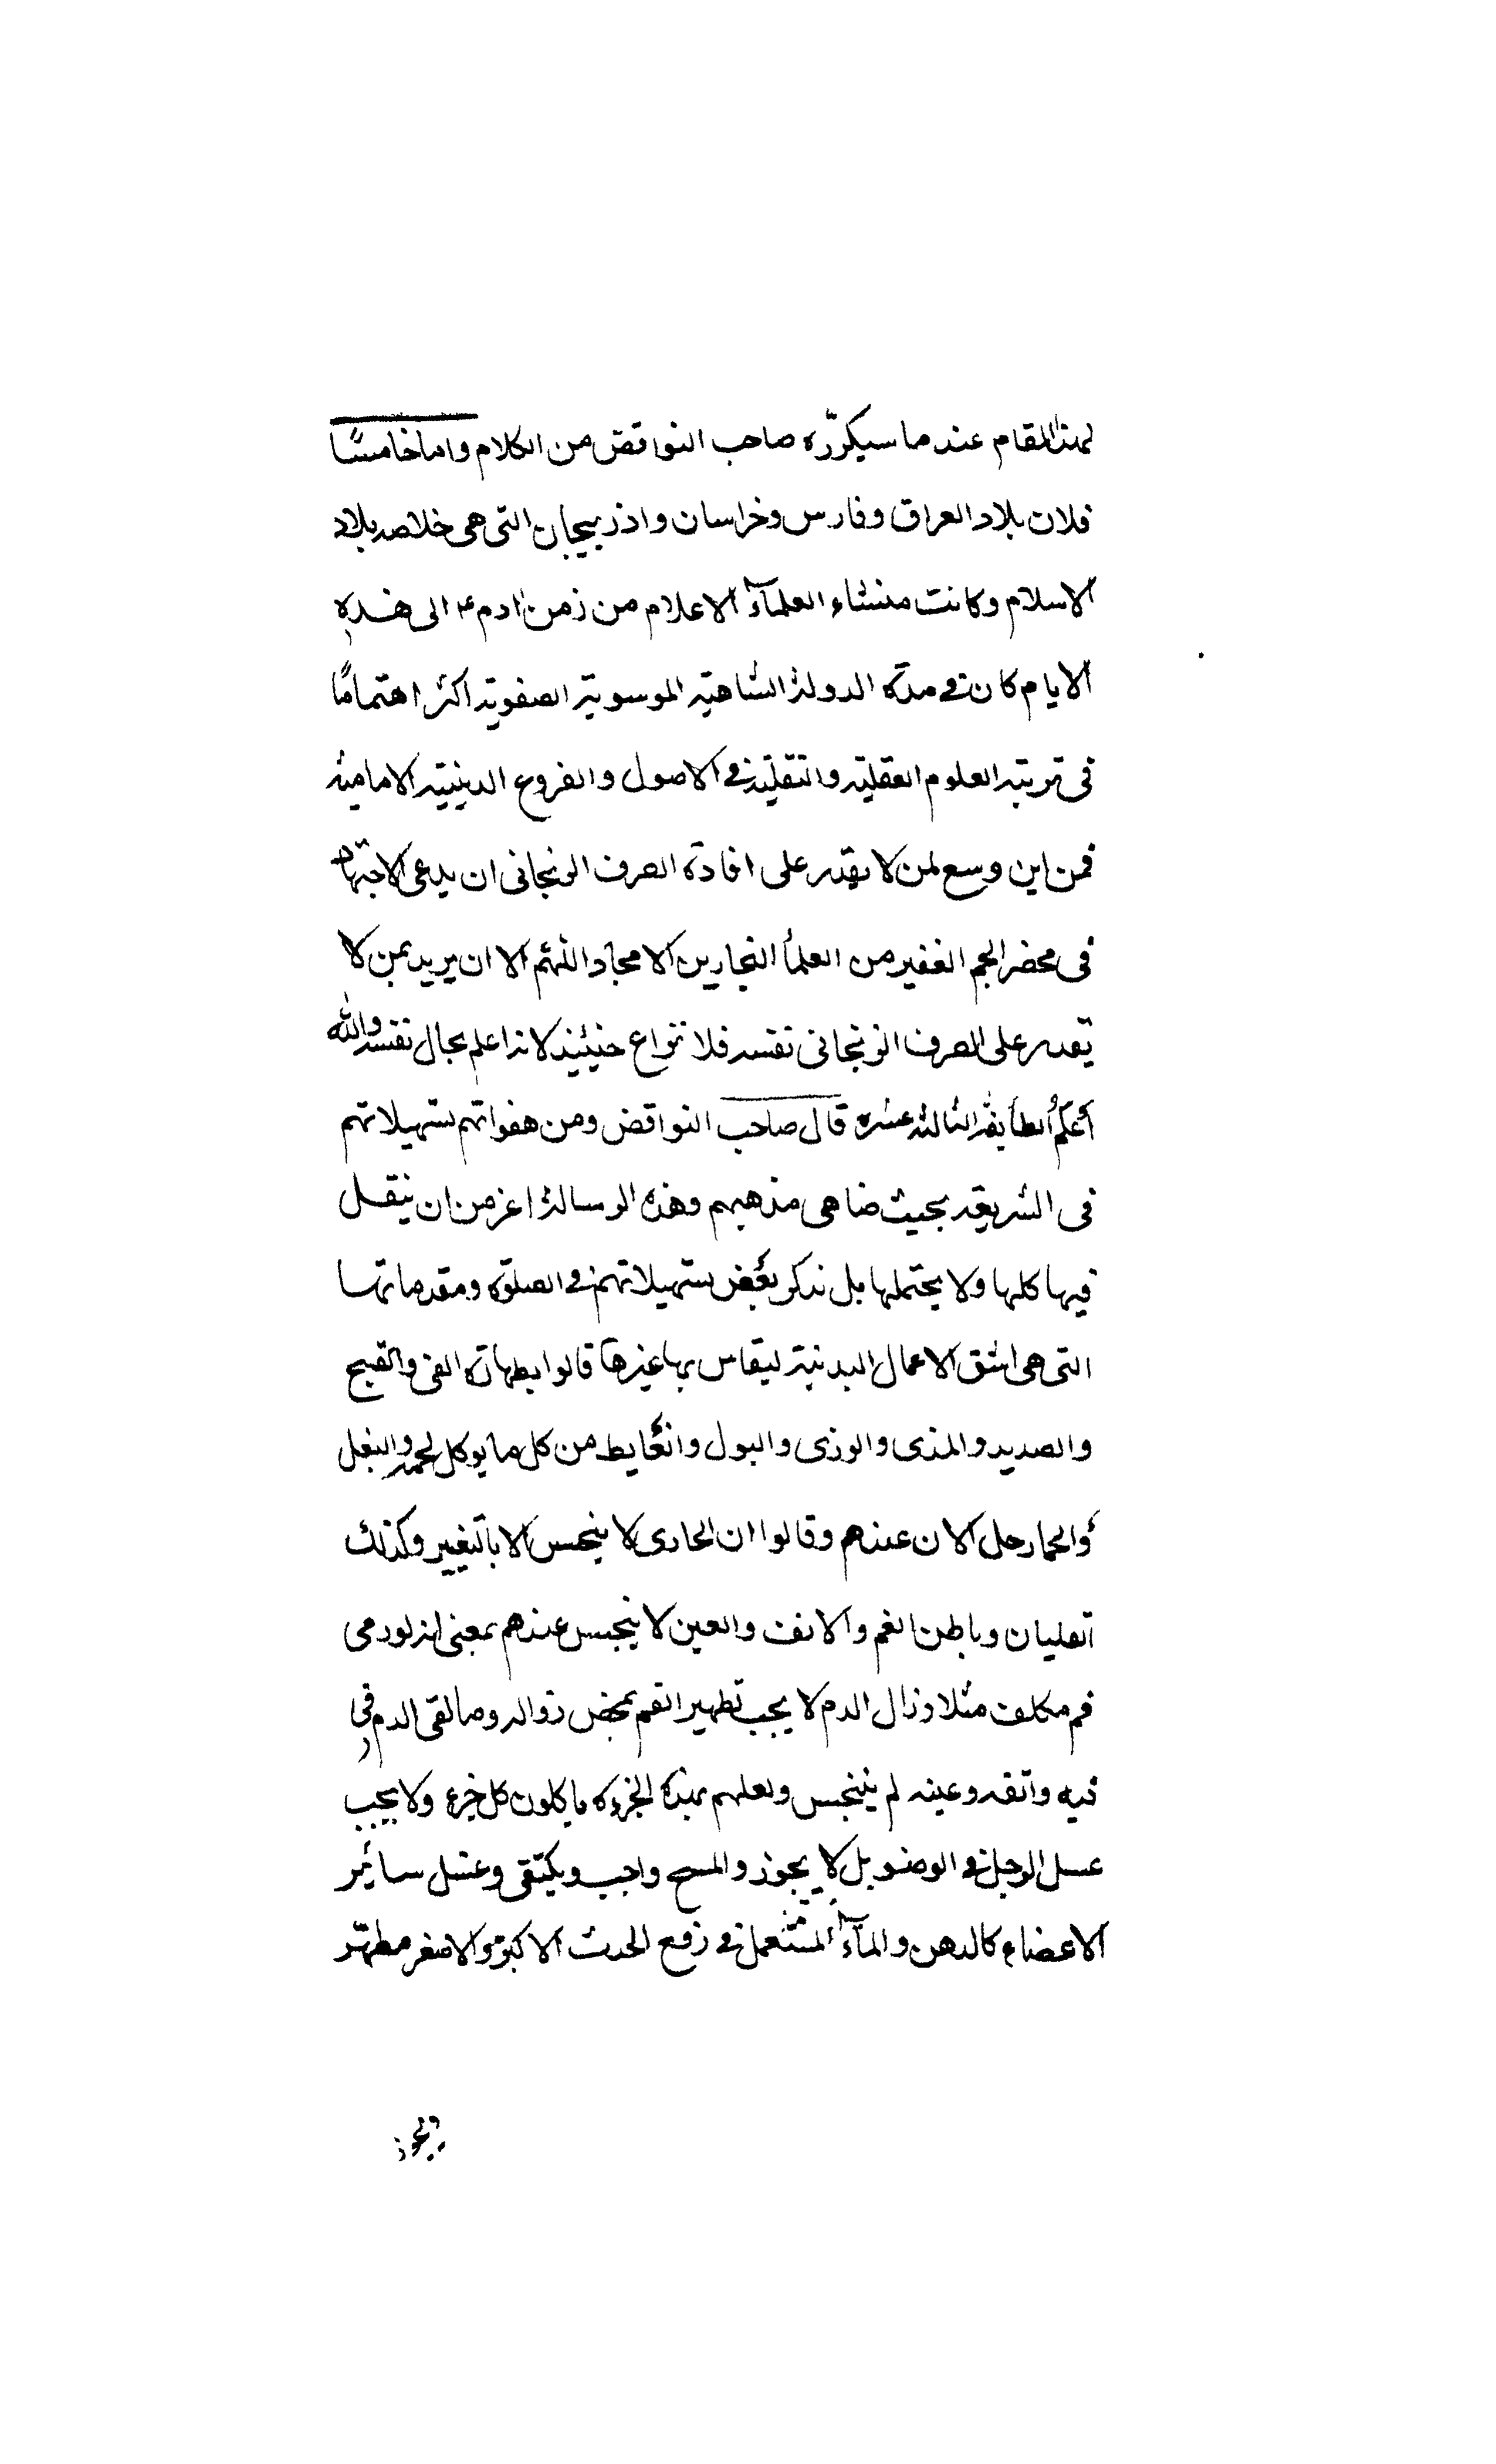 لهذا المقام عند ما سيكرّره صاحب النواقض من الكلام واما خامسًا
فلان بلاد العراق وفارس وخراسان واذربيجان التى هى خلاصه بلاد
الاسلام وكانت منشاء العلمآء الاعلام من زمن ادم ع الى هذه
الايام كان فى مدّه الدولة الشاهيّه الموسويّة الصفويّه اكثر اهتمامًا
فى تربيه العلوم العقليّه والنقليّه فى الاصول والفروع الدينيّه الاماميّه
فمن اين وسع لمن لا يقدر على افادة الصرف الزنجانى ان يدعى الاجتهاد
فى محضر الجم الغفير من العلمأ النحارين الامجاد اللهم الا ان يريد بمن لا
يقدر على الصرف الزنجانى نفسه فلا نزاع حينئذ لانه اعلم بحال نفسه والله
أعلم الطايفه الثالثه عشره قال صاحب النواقض ومن هفواتهم تسهيلاتهم
فى الشريعه بحيث ضاهى مذهبهم وهذه الرسالة اعز من ان ينقل
فيها كلها ولا يحتملها بل نذكر بعض تسهيلاتهم فى الصلوة ومقدماتها
التى هى اشق الاعمال البدنية ليقاس بها غيرها قالوا بطهارة القى والقيح
والصديد والمذى والوذى والبول والغايط من كل ما يوكل لحمه والبغل
والحمار حل الان عندهم وقالوا ان الجارى لا ينجس الا بالتغيير وكذلك
القليان وباطن الفم والانف والعين لا ينجس عندهم بمعنى انه لو دمى
فم مكلف مثلا وزال الدم لا يجب تطهير الفم بمحض زواله وما لقى الدم فى
فيه وانفه وعينه لم يتنجس ولعلهم بهذه الخرءه ياكلون كل خرء ولا يجب
غسل الرجل فى الوضو بل لا يجوز والمسح واجب ويكتفى وغسل سائر
الاعضاء كالدهن والمآء المستعمل فى رفع الحدث الاكبر والاصغر مطهّر
ويجوز